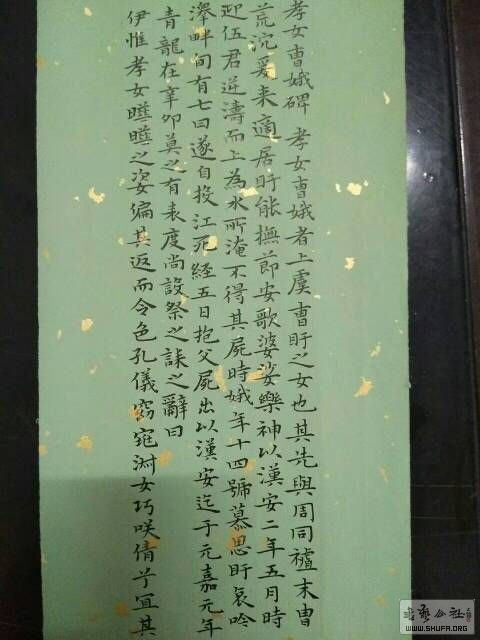 孝女曹娥碑 孝女曹娥者上虞曹盱之女也其先與周同禮末胄
荒沉爰来適居盱能撫節安歌婆娑樂神以漢安二年五月時
迎伍君逆濤而上為水所淹不得其屍時娥年十四號慕思盱哀吟
澤畔旬有七日遂自投江死經五日抱父屍出以漢安迄于元嘉元年
青龍在辛卯莫之有表度尚設祭之誄之辭曰
伊惟孝女曄曄之姿偏其返而令色孔儀窈窕淑女巧咲倩兮宜其
书艺公社
WWW.SHUFA.ORG